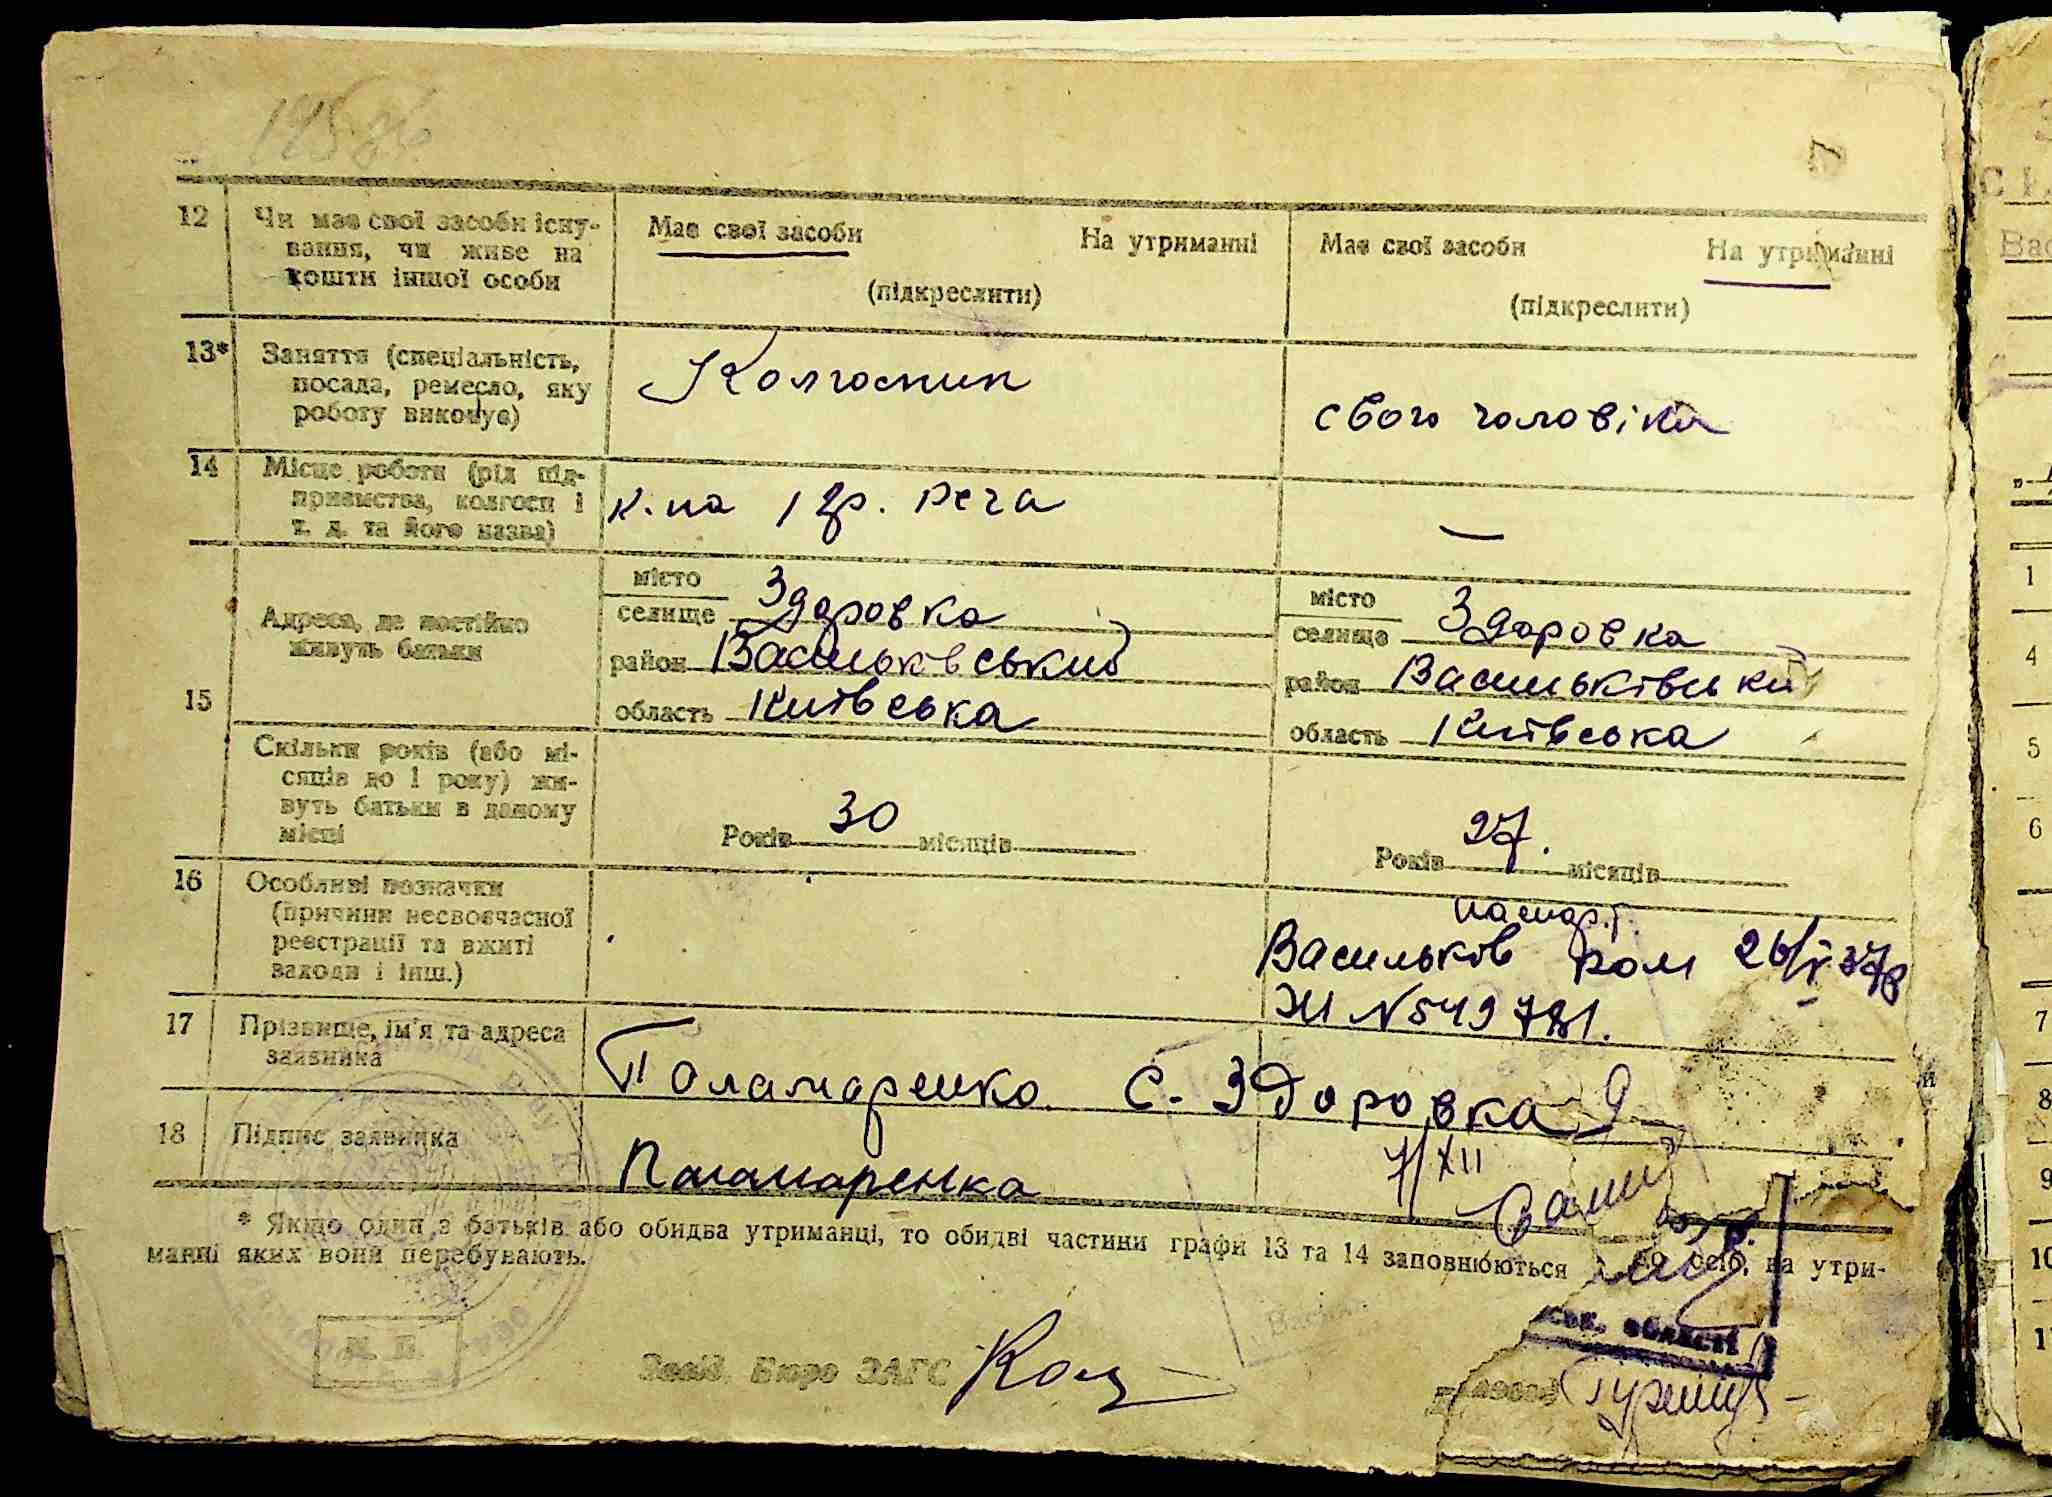 12 Чи має свої засоби існу-
вання, чи живе на
кошти іншої особи
Має свої засоби На утриманні
(підкреслити)
Має свої засоби На утриманні
(підкреслити)
13* Заняття (спеціальність,
посада, ремесло, яку
роботу виконує)
Колгоспник
свого чоловіка
14 Місце роботи (рід під-
приємства, колгосп і
т. д. та його назва)
к-па 1 гр. реча
—
15 Адреса, де постійно
живуть батьки
місто
селище Здоровка
район Васильківський
область Київська
місто
селище Здоровка
район Васильківський
область Київська
Скільки років (або мі-
сяців до 1 року) жи-
вуть батьки в даному
місці
Років 30 місяців
Років 27. місяців
16 Особливі позначки
(причини несвоєчасної
реєстрації та вжиті
заходи і інш.)
паспорт.
Васильків 26/V 37р
ЖІ N 549781.
17 Прізвище, ім'я та адреса
заявника
Паламаренко с. Здоровка
18 Підпис заявника
Паламаренка
7/XII
* Якщо один з батьків або обидва утриманці, то обидві частини графи 13 та 14 заповнюються осіб, на утри-
манні яких вони перебувають.
ськ. області
М. П.
Завід. Бюро ЗАГС
7
1
4
5
6
7
8
9
10